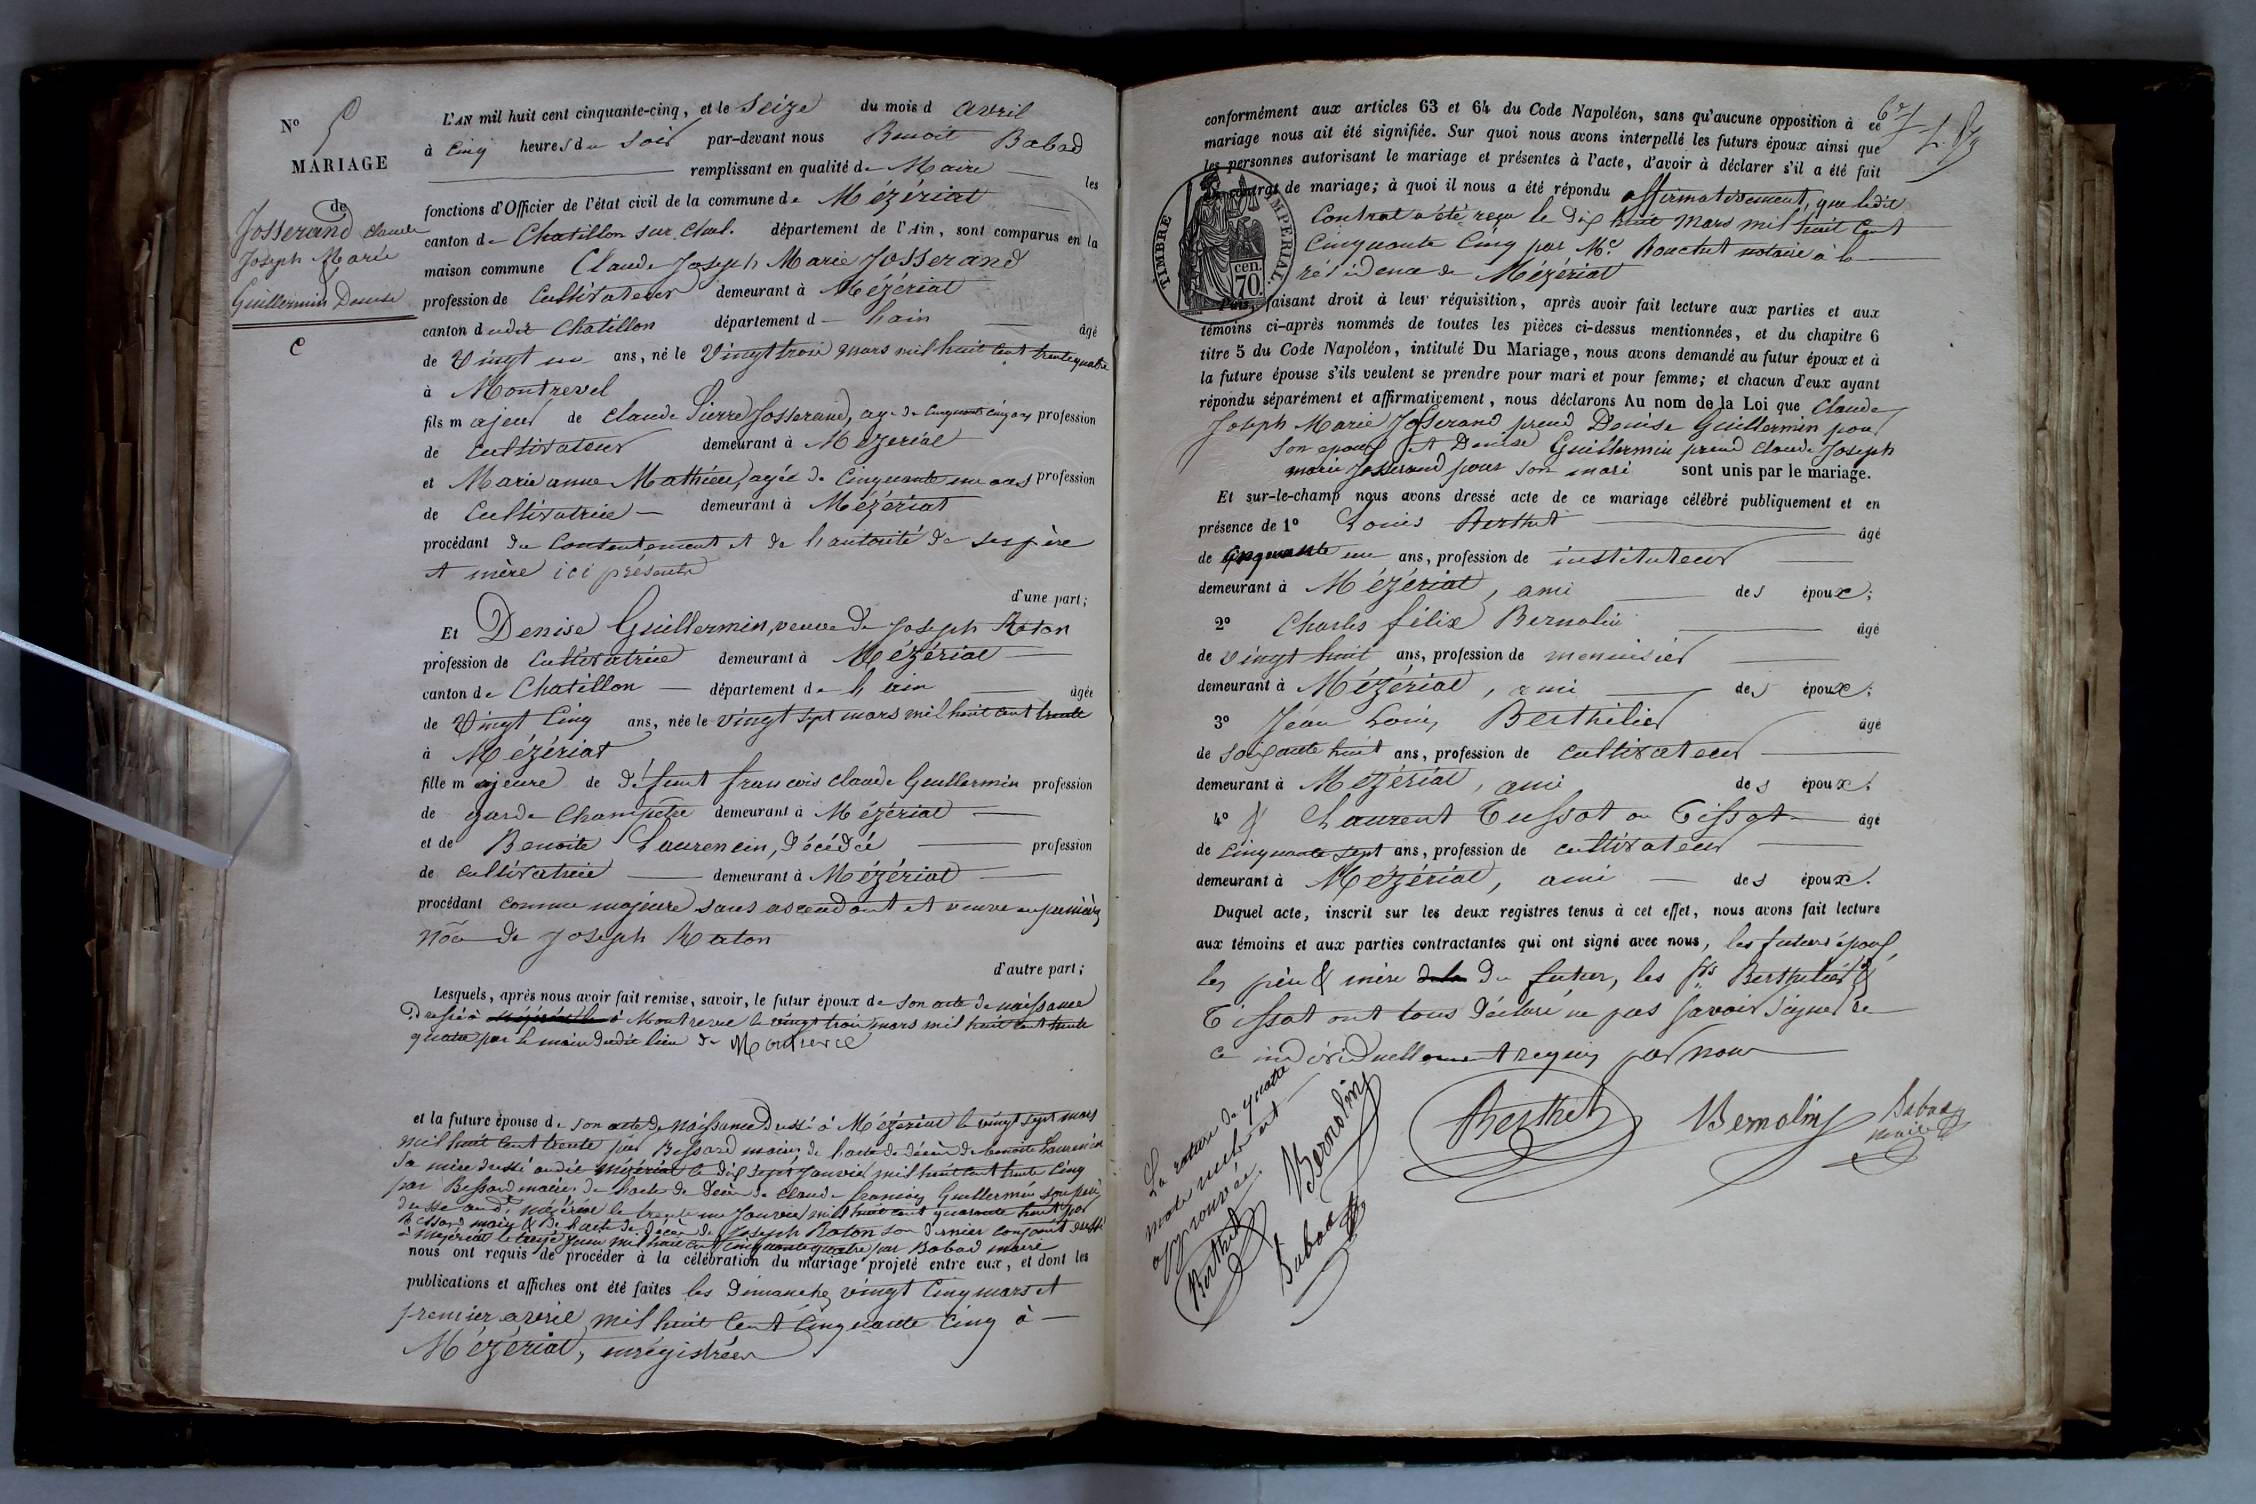 N° 5
MARIAGE
de
Josserand Claude
Joseph Marie
&
Guillermin Denise
C
L'AN mil huit cent cinquante-cinq, et le Seize du mois d avril
à Cinq heures du Soir par-devant nous Benoit Babad
remplissant en qualité de Maire les
fonctions d'Officier de l'état civil de la commune de Mézériat
canton de Chatillon sur Chal. département de l'Ain, sont comparus en la
maison commune Claude Joseph Marie Josserand
profession de Cultivateur demeurant à Mézériat
canton dudit Chatillon département d l'ain âgé
de Vingt un ans, né le Vingt trois mars mil huit cent trente quatre
à Montrevel
fils majeur de Claude Pierre Josserand, agé de Cinquante cinq ans profession
de Cultivateur demeurant à Mézériat
et Marie anne Mathieu, agée de Cinquante un ans profession
de Cultivatrice demeurant à Mézériat
procédant du Consentement et de l'autorité de ses père
et mère ici présents
d'une part;
Et Denise Guillermin, veuve de Joseph Raton
profession de Cultivatrice demeurant à Mézériat
canton de Chatillon département de l'ain âgée
de Vingt Cinq ans, née le vingt sept mars mil huit cent trente
à Mézériat
fille majeure de défunt françois claude Guillermin profession
de garde Champêtre demeurant à Mézériat
et de Benoite Laurencin, décédée profession
de cultivatrice demeurant à Mézériat
procédant comme majeure sans ascendant et veuve en premières
nôces de Joseph Raton
d'autre part;
Lesquels, après nous avoir fait remise, savoir, le futur époux de son acte de naissance
Dressé à à Montrevel le vingt trois mars mil huit cent trente
quatre par le maire dudit lieu de Montrevel
et la future épouse de son acte de naissance Dressé à Mézériat le vingt sept mars
mil huit cent trente par Bossard maire, de l'acte de décès de benoite Laurencin
sa mère dressé audit Mézériat le dix sept janvier mil huit cent trente Cinq
par Bossard maire, de l'acte de décès de Claude françois Guillermin son père
dressé aud. mézériat le trente un Janvier mil huit cent quarante huit par
Bossard maire & de l'acte de décès de Joseph Raton son dernier conjoint dressé
à Mézériat le treize Juin mil huit cent cinquante quatre par Babad maire
nous ont requis de procéder à la célébration du mariage projeté entre eux, et dont les
publications et affiches ont été faites les dimanches vingt Cinq mars et
premier avril mil huit Cent Cinquante Cinq à
Mézériat, enrégistrées
conformément aux articles 63 et 64 du Code Napoléon, sans qu'aucune opposition à ce
mariage nous ait été signifiée. Sur quoi nous avons interpellé les futurs époux ainsi que
les personnes autorisant le mariage et présentes à l'acte, d'avoir à déclarer s'il a été fait
contrat de mariage; à quoi il nous a été répondu affirmativement, que ledit
Contrat a été reçu le Dix huit Mars mil huit Cent
Cinquante Cinq par Me. Bouchet notaire à la
résidence de Mézériat
TIMBRE IMPÉRIAL.
70 cen.
Puis, faisant droit à leur réquisition, après avoir fait lecture aux parties et aux
témoins ci-après nommés de toutes les pièces ci-dessus mentionnées, et du chapitre 6
titre 5 du Code Napoléon, intitulé Du Mariage, nous avons demandé au futur époux et à
la future épouse s'ils veulent se prendre pour mari et pour femme; et chacun d'eux ayant
répondu séparément et affirmativement, nous déclarons Au nom de la Loi que Claude
Joseph Marie Josserand prend Denise Guillermin pour
son epouse et Denise Guillermin prend Claude Joseph
marie Josserand pour son mari sont unis par le mariage.
Et sur-le-champ nous avons dressé acte de ce mariage célébré publiquement et en
présence de 1° Louis Berthet âgé
de Cinquante un ans, profession de instituteur
demeurant à Mézériat, ami des époux;
2° Charles félix Bernolin âgé
de vingt huit ans, profession de menuisier
demeurant à Mézériat, ami des époux;
3° Jean Louis Berthilier âgé
de soixante huit ans, profession de cultivateur
demeurant à Mézériat, ami des époux;
4° & Laurent Tussot ou Tissot âgé
de cinquante sept ans, profession de cultivateur
demeurant à Mézériat, ami des époux.
Duquel acte, inscrit sur les deux registres tenus à cet effet, nous avons fait lecture
aux témoins et aux parties contractantes qui ont signé avec nous, les futurs époux,
les père & mère du futur, les srs Berthilier &
Tissot ont tous déclaré ne pas savoir signer de
ce individuellement requis par nous
La rature de quatre
mots nuls est
approuvée.
Berthet
Bernolin
Babad
Berthet
Bernolin
Babad
maire